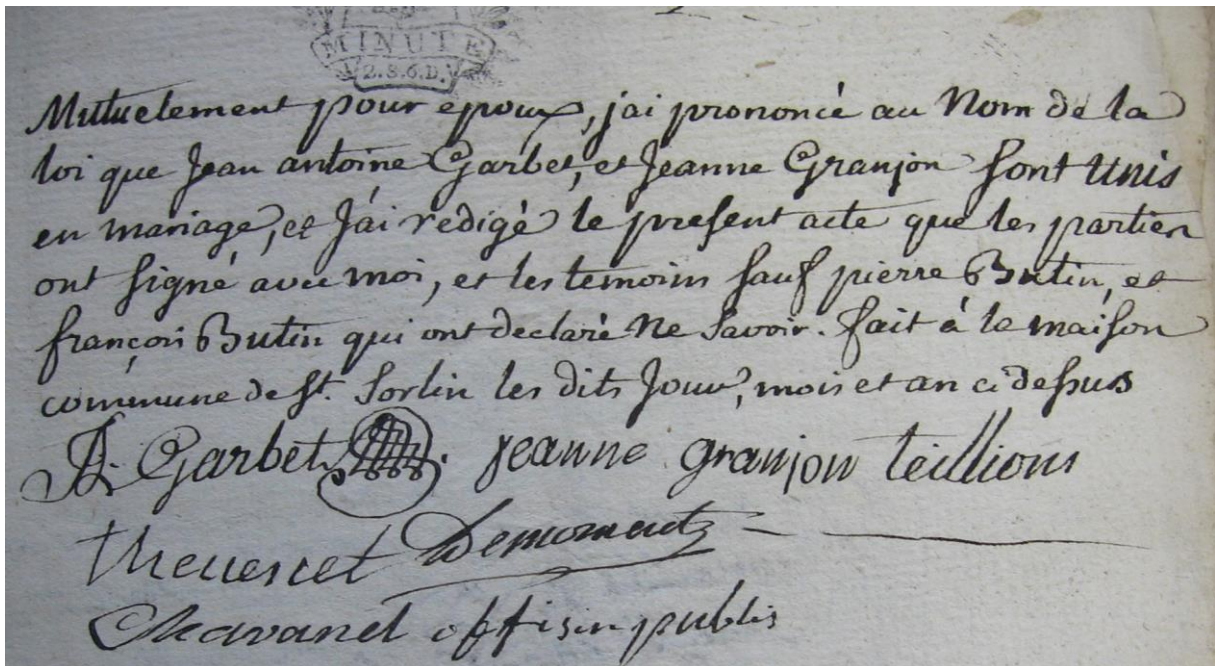 MINUTE
2.S.6.D.
Mutuelement pour epoux, j'ai prononcé au Nom de la
loi que Jean antoine Garbet, et Jeanne Granjon sont unis
en mariage, et J'ai redigé le present acte que les parties
ont signé avec moi, et les temoins sauf pierre Butin, et
françois Butin qui ont declaré Ne savoir. fait à la maison
commune de St. Sorlin les dits Jour, mois et an ci dessus
Garbet jeanne granjon teillion
thevenet Demoment
Chavanel offisier publis